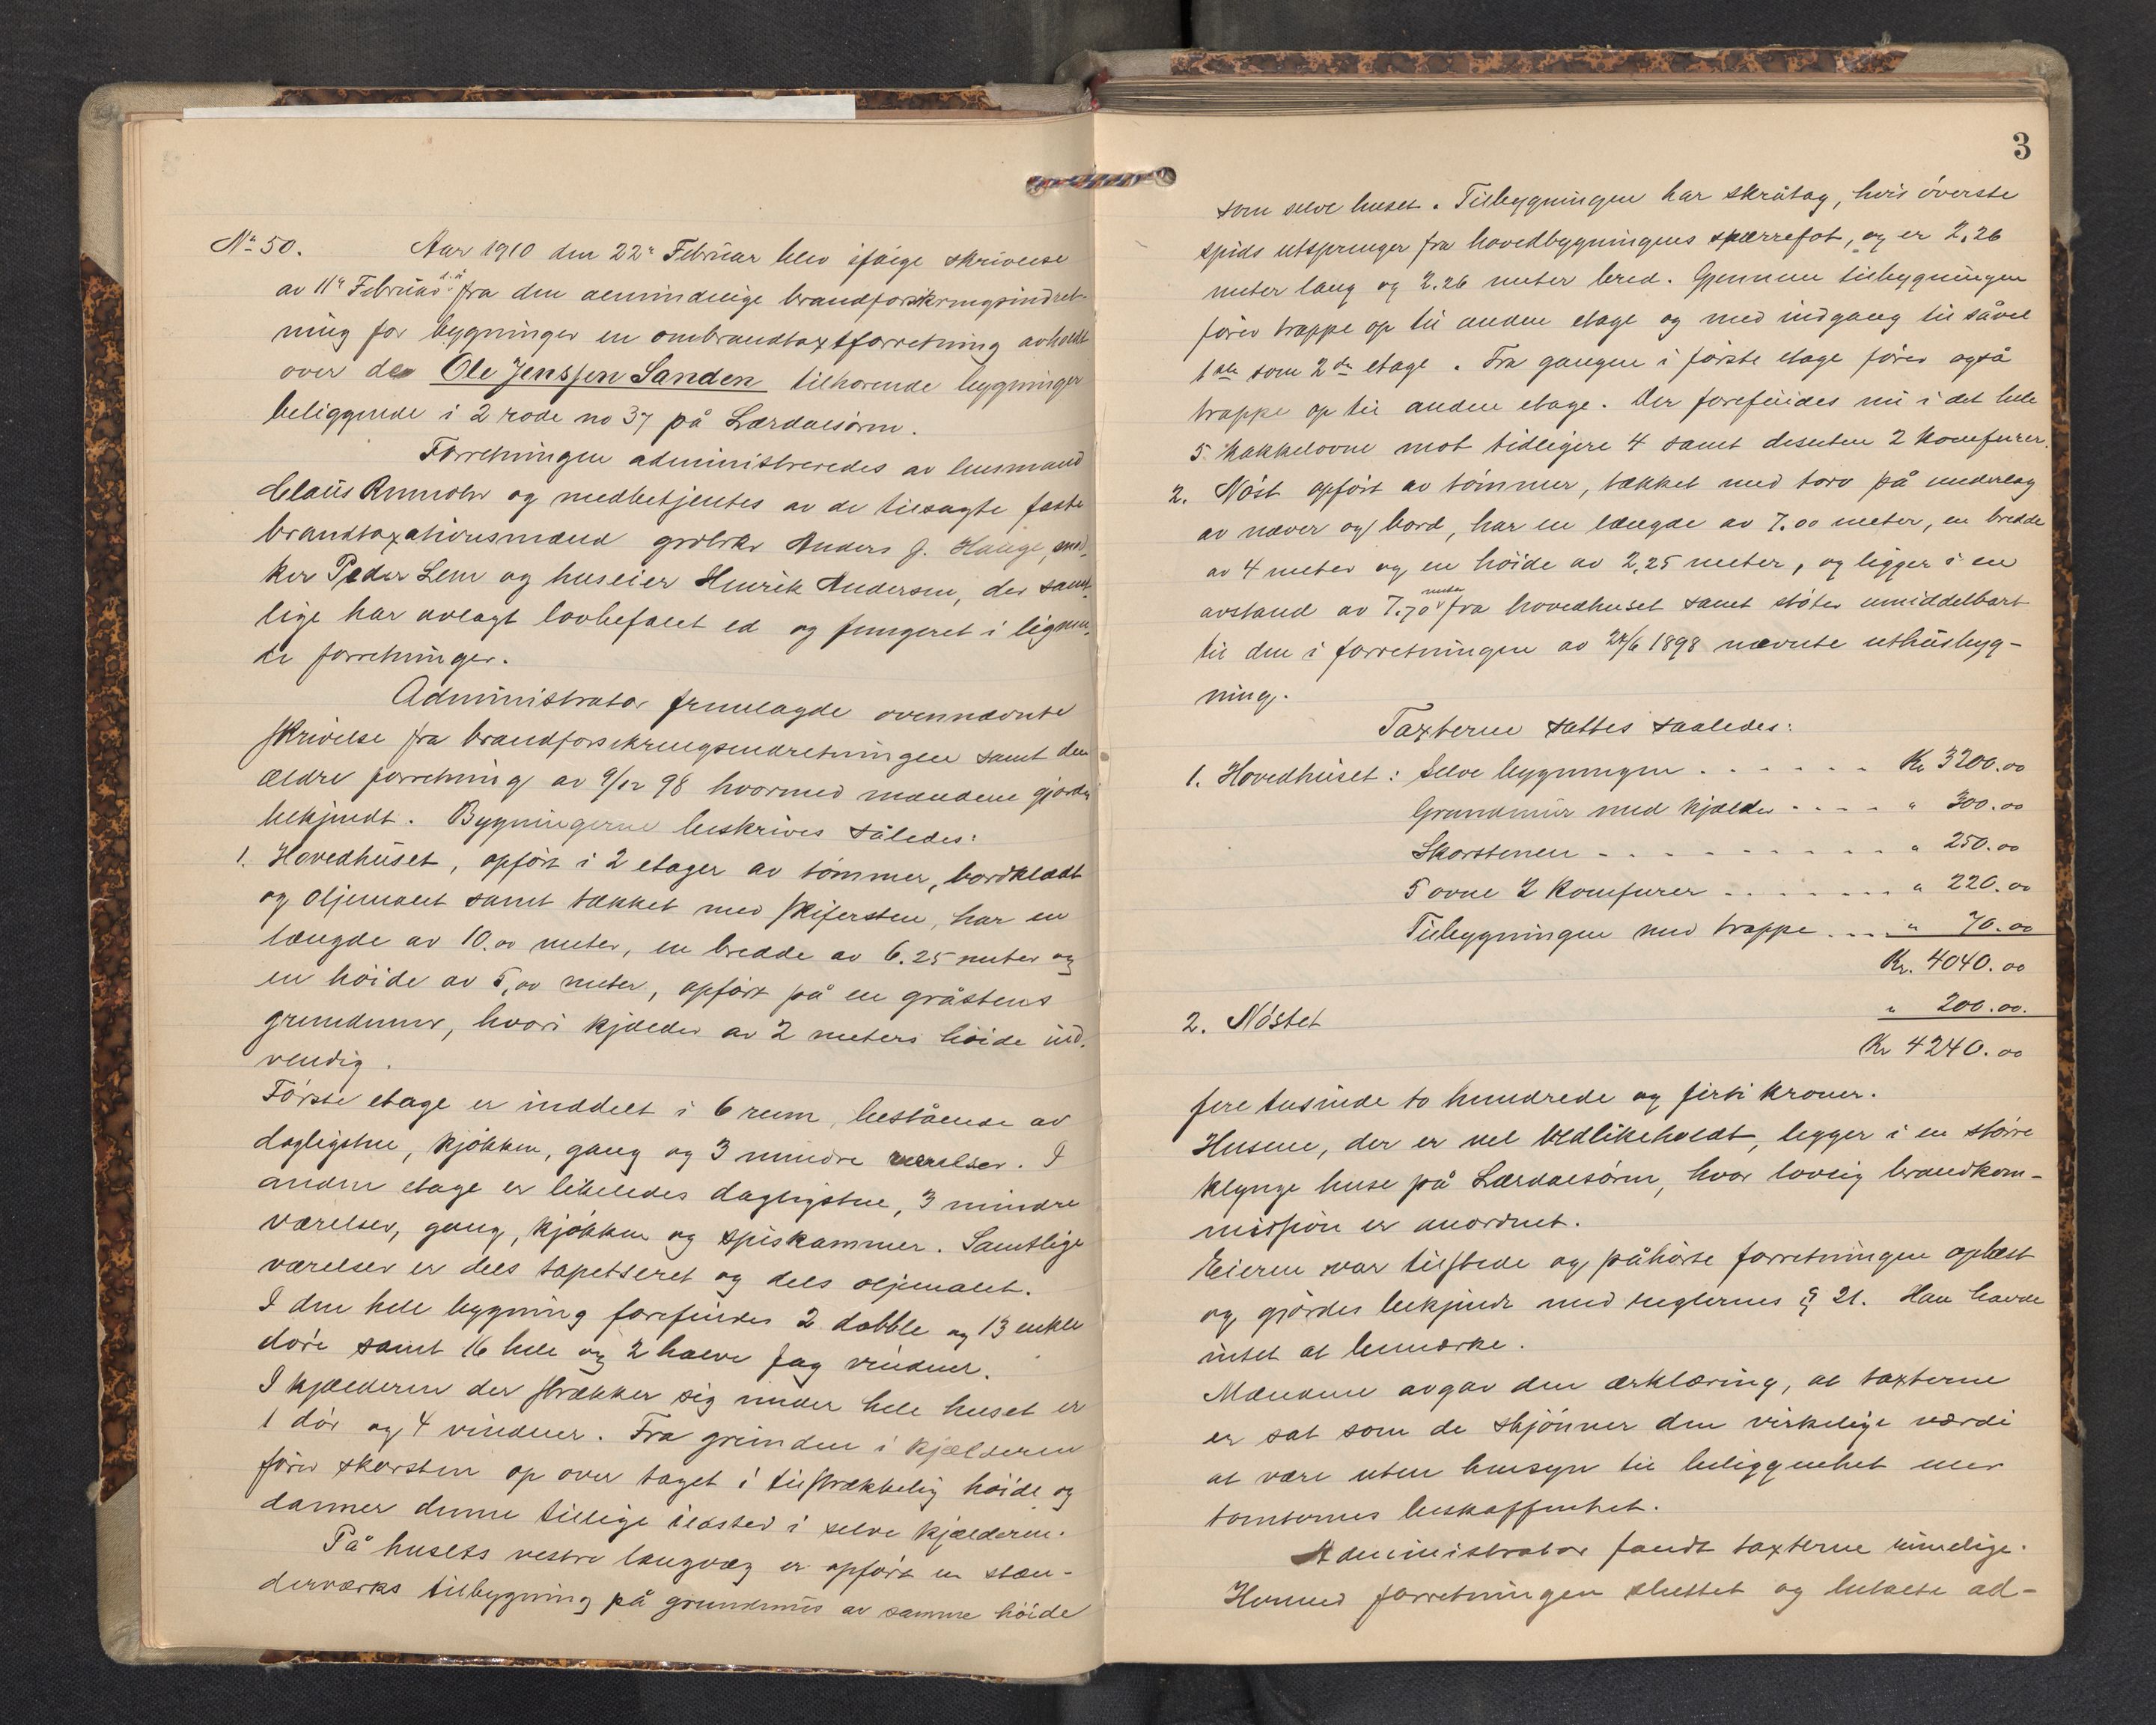 No 50. Aar 1910 den 22de Februar blev ifølge skrivelse
av 11te Februar d.å. fra den almindelige brandforsikringsindret-
ning for bygninger en ombrandtaxtforretning avholdt
over de Ole Jenssen Sanden tilhørende bygninger
beliggende i 2 rode no 37 på Lærdalsøren.
Forretningen administreredes av lensmand
Claus Rumohr og medbetjentes av de tilsagte faste
brandtaxationsmænd grdbrkr Anders J. Hauge, sned-
ker Peder Lem og huseier Henrik Andersen, der samt-
lige har avlagt lovbefalet ed og fungeret i lignen-
de forretninger.
Administrator fremlagde ovennævnte
skrivelse fra brandforsikringsindretningen samt den
ældre forretning av 9/12 98 hvormed mændene gjordes
bekjendt. Bygningerne beskrives således:
1. Hovedhuset, opført i 2 etager av tømmer, bordklædt
og oljemalet samt tækket med skifersten, har en
længde av 10.00 meter, en bredde av 6.25 meter og
en høide av 5,00 meter, opført på en gråstens
grundmur, hvori kjælder av 2 meters høide ind-
vendig.
Første etage er inddelt i 6 rum, bestående av
dagligstue, kjøkken, gang og 3 mindre værelser. I
anden etage er likeledes dagligstue, 3 mindre
værelser, gang, kjøkken og spiskammer. Samtlige
værelser er dels tapetseret og dels oljemalet.
I den hele bygning forefindes 2 dobble og 13 enkle
døre samt 16 hele og 2 halve fag vinduer.
I kjælderen der strækker sig under hele huset er
1 dør og 4 vinduer. Fra grunden i kjælderen
fører skorsten op over taget i tilstrækkelig høide og
danner denne tillige ildsted i selve kjælderen.
På husets vestre langvæg er opført en stæn-
derværks tilbygning på grundmur av samme høide
3
som selve huset. Tilbygningen har skråtag, hvis øverste
spids utspringer fra hovedbygningens spærrefot, og er 2,26
meter lang og 2.26 meter bred. Gjennem tilbygningen
fører trappe op til anden etage og med indgang til såvel
1ste som 2den etage. Fra gangen i første etage fører også
trappe op til anden etage. Der forefindes nu i det hele
5 kakkelovne mot tidligere 4 samt desuten 2 komfurer.
2. Nøst opført av tømmer, tækket med torv på underlag
av næver og bord, har en længde av 7.00 meter, en bredde
av 4 meter og en høide av 2,25 meter, og ligger i en
avstand av 7.70 meter fra hovedhuset samt støter umiddelbart
til den i forretningen av 24/6 1898 nævnte uthusbyg-
ning.
Taxterne sattes saaledes:
1. Hovedhuset: Selve bygningen . . . . . . Kr 3200.00
Grundmur med kjælder . . . . " 300.00
Skorstenen . . . . . . . . . " 250.00
5 ovne 2 komfurer . . . . . . " 220.00
Tilbygningen med trappe . . . . " 70.00
Kr. 4040.00
2. Nøstet " 200.00.
Kr 4240.00
fire tusinde to hundrede og firti kroner.
Husene, der er vel vedlikeholdt, ligger i en større
klynge huse på Lærdalsøren, hvor lovlig brandkom-
mission er anordnet.
Eieren var tilstede og påhørte forretningen oplæst
og gjordes bekjendt med reglernes § 21. Han havde
intet at bemærke.
Mændene avgav den erklæring, at taxterne
er sat som de skjønner den virkelige værdi
at være uten hensyn til beliggenhet eller
tomternes beskaffenhet.
Administrator fandt taxterne rimelige.
Hermed forretningen sluttet og betalte ad-